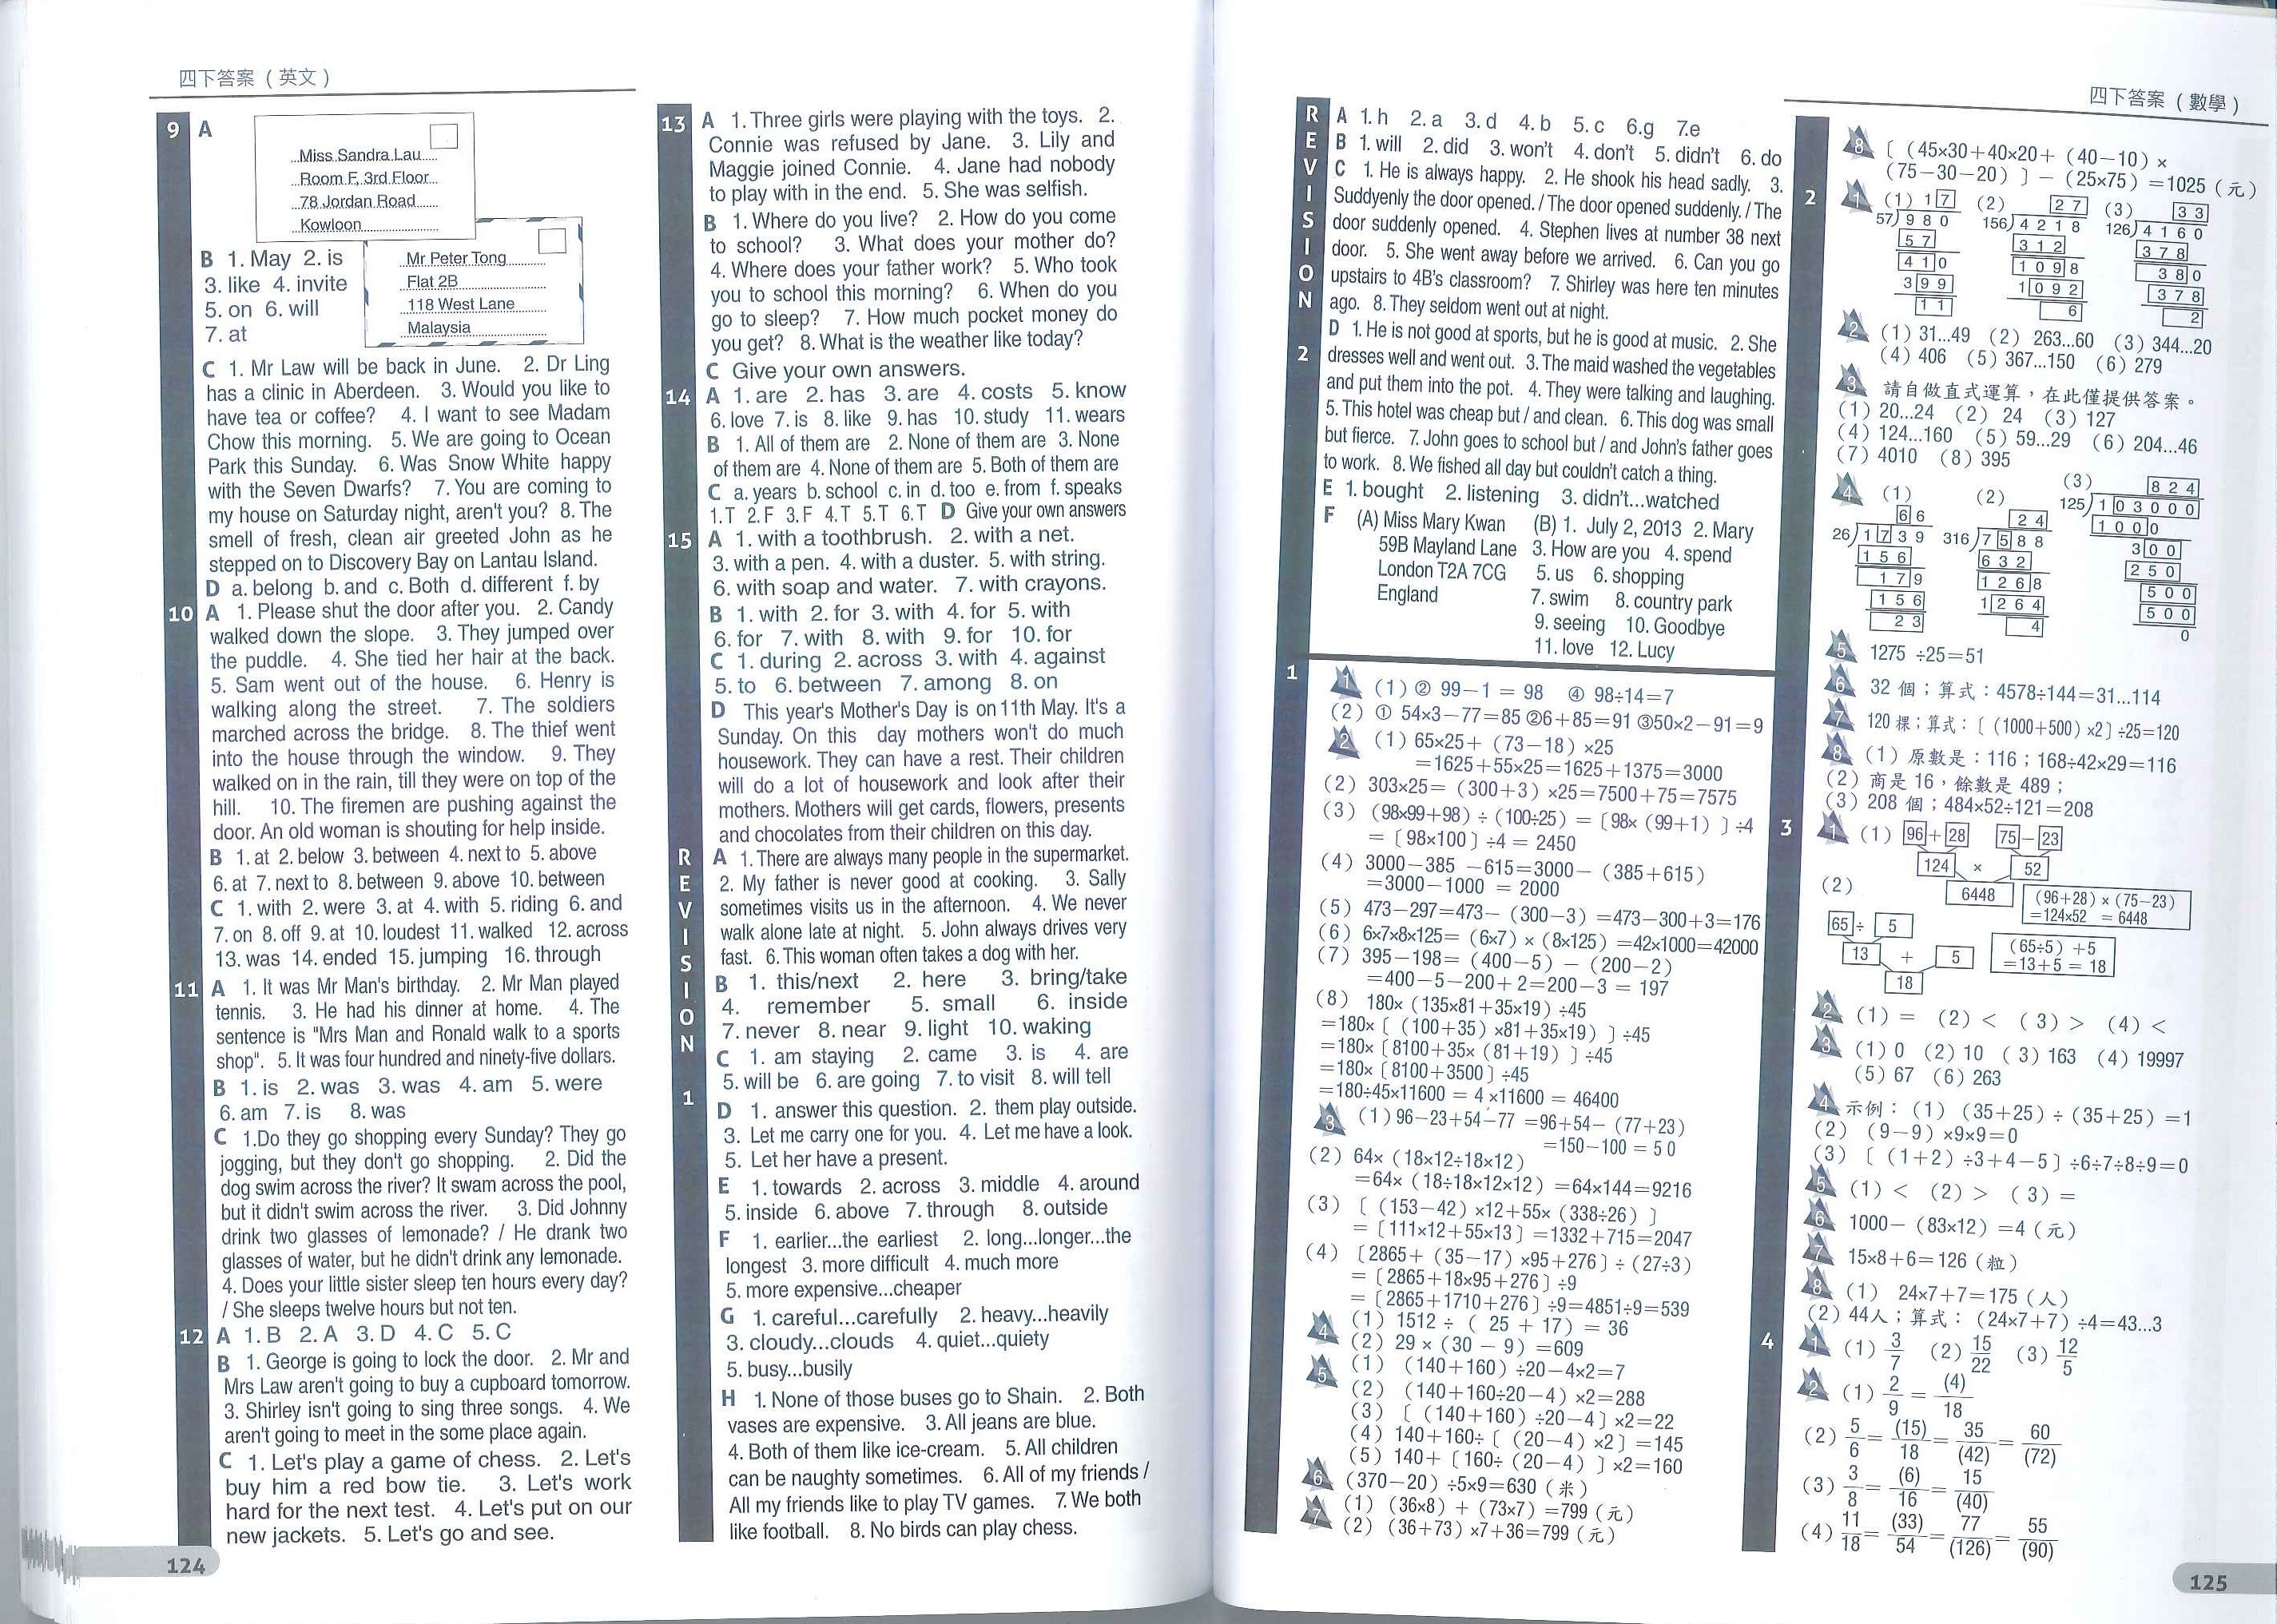 四下答案 ( 英文 )
9 A
Miss Sandra Lau
Room F, 3rd Floor
78 Jordan Road
Kowloon
Mr Peter Tong
Flat 2B
118 West Lane
Malaysia
B 1. May 2. is
3. like 4. invite
5. on 6. will
7. at
C 1. Mr Law will be back in June. 2. Dr Ling
has a clinic in Aberdeen. 3. Would you like to
have tea or coffee? 4. I want to see Madam
Chow this morning. 5. We are going to Ocean
Park this Sunday. 6. Was Snow White happy
with the Seven Dwarfs? 7. You are coming to
my house on Saturday night, aren't you? 8. The
smell of fresh, clean air greeted John as he
stepped on to Discovery Bay on Lantau Island.
D a. belong b. and c. Both d. different f. by
10 A 1. Please shut the door after you. 2. Candy
walked down the slope. 3. They jumped over
the puddle. 4. She tied her hair at the back.
5. Sam went out of the house. 6. Henry is
walking along the street. 7. The soldiers
marched across the bridge. 8. The thief went
into the house through the window. 9. They
walked on in the rain, till they were on top of the
hill. 10. The firemen are pushing against the
door. An old woman is shouting for help inside.
B 1. at 2. below 3. between 4. next to 5. above
6. at 7. next to 8. between 9. above 10. between
C 1. with 2. were 3. at 4. with 5. riding 6. and
7. on 8. off 9. at 10. loudest 11. walked 12. across
13. was 14. ended 15. jumping 16. through
11 A 1. It was Mr Man's birthday. 2. Mr Man played
tennis. 3. He had his dinner at home. 4. The
sentence is "Mrs Man and Ronald walk to a sports
shop". 5. It was four hundred and ninety-five dollars.
B 1. is 2. was 3. was 4. am 5. were
6. am 7. is 8. was
C 1.Do they go shopping every Sunday? They go
jogging, but they don't go shopping. 2. Did the
dog swim across the river? It swam across the pool,
but it didn't swim across the river. 3. Did Johnny
drink two glasses of lemonade? / He drank two
glasses of water, but he didn't drink any lemonade.
4. Does your little sister sleep ten hours every day?
/ She sleeps twelve hours but not ten.
12 A 1. B 2. A 3. D 4. C 5. C
B 1. George is going to lock the door. 2. Mr and
Mrs Law aren't going to buy a cupboard tomorrow.
3. Shirley isn't going to sing three songs. 4. We
aren't going to meet in the some place again.
C 1. Let's play a game of chess. 2. Let's
buy him a red bow tie. 3. Let's work
hard for the next test. 4. Let's put on our
new jackets. 5. Let's go and see.
124
13 A 1. Three girls were playing with the toys. 2.
Connie was refused by Jane. 3. Lily and
Maggie joined Connie. 4. Jane had nobody
to play with in the end. 5. She was selfish.
B 1. Where do you live? 2. How do you come
to school? 3. What does your mother do?
4. Where does your father work? 5. Who took
you to school this morning? 6. When do you
go to sleep? 7. How much pocket money do
you get? 8. What is the weather like today?
C Give your own answers.
14 A 1. are 2. has 3. are 4. costs 5. know
6. love 7. is 8. like 9. has 10. study 11. wears
B 1. All of them are 2. None of them are 3. None
of them are 4. None of them are 5. Both of them are
C a. years b. school c. in d. too e. from f. speaks
1.T 2.F 3.F 4.T 5.T 6.T D Give your own answers
15 A 1. with a toothbrush. 2. with a net.
3. with a pen. 4. with a duster. 5. with string.
6. with soap and water. 7. with crayons.
B 1. with 2. for 3. with 4. for 5. with
6. for 7. with 8. with 9. for 10. for
C 1. during 2. across 3. with 4. against
5. to 6. between 7. among 8. on
D This year's Mother's Day is on 11th May. It's a
Sunday. On this day mothers won't do much
housework. They can have a rest. Their children
will do a lot of housework and look after their
mothers. Mothers will get cards, flowers, presents
and chocolates from their children on this day.
REVISION 1
A 1. There are always many people in the supermarket.
2. My father is never good at cooking. 3. Sally
sometimes visits us in the afternoon. 4. We never
walk alone late at night. 5. John always drives very
fast. 6. This woman often takes a dog with her.
B 1. this/next 2. here 3. bring/take
4. remember 5. small 6. inside
7. never 8. near 9. light 10. waking
C 1. am staying 2. came 3. is 4. are
5. will be 6. are going 7. to visit 8. will tell
D 1. answer this question. 2. them play outside.
3. Let me carry one for you. 4. Let me have a look.
5. Let her have a present.
E 1. towards 2. across 3. middle 4. around
5. inside 6. above 7. through 8. outside
F 1. earlier...the earliest 2. long...longer...the
longest 3. more difficult 4. much more
5. more expensive...cheaper
G 1. careful...carefully 2. heavy...heavily
3. cloudy...clouds 4. quiet...quiety
5. busy...busily
H 1. None of those buses go to Shain. 2. Both
vases are expensive. 3. All jeans are blue.
4. Both of them like ice-cream. 5. All children
can be naughty sometimes. 6. All of my friends /
All my friends like to play TV games. 7. We both
like football. 8. No birds can play chess.
REVISION 2
A 1. h 2. a 3. d 4. b 5. c 6.g 7.e
B 1. will 2. did 3. won't 4. don't 5. didn't 6. do
C 1. He is always happy. 2. He shook his head sadly. 3.
Suddyenly the door opened. / The door opened suddenly. / The
door suddenly opened. 4. Stephen lives at number 38 next
door. 5. She went away before we arrived. 6. Can you go
upstairs to 4B's classroom? 7. Shirley was here ten minutes
ago. 8. They seldom went out at night.
D 1. He is not good at sports, but he is good at music. 2. She
dresses well and went out. 3. The maid washed the vegetables
and put them into the pot. 4. They were talking and laughing.
5. This hotel was cheap but / and clean. 6. This dog was small
but fierce. 7. John goes to school but / and John's father goes
to work. 8. We fished all day but couldn't catch a thing.
E 1. bought 2. listening 3. didn't...watched
F (A) Miss Mary Kwan (B) 1. July 2, 2013 2. Mary
59B Mayland Lane 3. How are you 4. spend
London T2A 7CG 5. us 6. shopping
England 7. swim 8. country park
9. seeing 10. Goodbye
11. love 12. Lucy
四下答案 ( 數學 )
1
1 (1) ② 99－1 = 98 ④ 98÷14=7
(2) ① 54×3－77=85 ②6＋85=91 ③50×2－91=9
2 (1) 65×25＋ (73－18) ×25
=1625＋55×25=1625＋1375=3000
(2) 303×25= (300＋3) ×25=7500＋75=7575
(3) (98×99＋98) ÷ (100÷25) = 〔98× (99＋1) 〕÷4
= 〔98×100〕÷4 = 2450
(4) 3000－385 －615=3000－ (385＋615)
=3000－1000 = 2000
(5) 473－297=473－ (300－3) =473－300＋3=176
(6) 6×7×8×125= (6×7) × (8×125) =42×1000=42000
(7) 395－198= (400－5) － (200－2)
=400－5－200＋2=200－3 = 197
(8) 180× (135×81＋35×19) ÷45
=180×〔 (100＋35) ×81＋35×19) 〕÷45
=180×〔8100＋35× (81＋19) 〕÷45
=180×〔8100＋3500〕÷45
=180÷45×11600 = 4 ×11600 = 46400
3 (1) 96－23＋54－77 =96＋54－ (77＋23)
=150－100 = 5 0
(2) 64× (18×12÷18×12)
=64× (18÷18×12×12) =64×144=9216
(3) 〔 (153－42) ×12＋55× (338÷26) 〕
= 〔111×12＋55×13〕=1332＋715=2047
(4) 〔2865＋ (35－17) ×95＋276〕÷ (27÷3)
= 〔2865＋18×95＋276〕÷9
= 〔2865＋1710＋276〕÷9=4851÷9=539
4 (1) 1512 ÷ ( 25 ＋ 17) = 36
(2) 29 × (30 － 9) =609
5 (1) (140＋160) ÷20－4×2=7
(2) (140＋160÷20－4) ×2=288
(3) 〔 (140＋160) ÷20－4〕×2=22
(4) 140＋160÷〔 (20－4) ×2〕=145
(5) 140＋〔160÷ (20－4) 〕×2=160
6 (370－20) ÷5×9=630 (米)
7 (1) (36×8) ＋ (73×7) =799 (元)
(2) (36＋73) ×7＋36=799 (元)
8 〔 (45×30＋40×20＋ (40－10) ×
(75－30－20) 〕－ (25×75) =1025 (元)
2
1 (1) 17 (2) 27 (3) 33
57)980 156)4218 126)4160
57 312 378
410 1098 380
399 1092 378
11 6 2
2 (1) 31...49 (2) 263...60 (3) 344...20
(4) 406 (5) 367...150 (6) 279
3 請自做直式運算，在此僅提供答案。
(1) 20...24 (2) 24 (3) 127
(4) 124...160 (5) 59...29 (6) 204...46
(7) 4010 (8) 395
4 (1) 66 (2) 24 (3) 824
26)1739 316)7588 125)103000
156 632 1000
179 1268 300
156 1264 250
23 4 500
500
0
5 1275 ÷25=51
6 32 個；算式：4578÷144=31...114
7 120 棵；算式：〔 (1000＋500) ×2〕÷25=120
8 (1) 原數是：116；168÷42×29=116
(2) 商是 16，餘數是 489；
(3) 208 個；484×52÷121=208
3
1 (1) 96＋28 75－23
124 × 52
6448 (96＋28) × (75－23)
=124×52 = 6448
(2) 65÷ 5
13 ＋ 5 (65÷5) ＋5
=13＋5 = 18
18
2 (1) = (2) < (3) > (4) <
3 (1) 0 (2) 10 (3) 163 (4) 19997
(5) 67 (6) 263
4 示例：(1) (35＋25) ÷ (35＋25) =1
(2) (9－9) ×9×9=0
(3) 〔 (1＋2) ÷3＋4－5〕÷6÷7÷8÷9=0
5 (1) < (2) > (3) =
6 1000－ (83×12) =4 (元)
7 15×8＋6=126 (粒)
8 (1) 24×7＋7=175 (人)
(2) 44人；算式： (24×7＋7) ÷4=43...3
4
1 (1) 3/7 (2) 15/22 (3) 12/5
2 (1) 2/9 = (4)/18
(2) 5/6 = (15)/18 = 35/(42) = 60/(72)
(3) 3/8 = (6)/16 = 15/(40)
(4) 11/18 = (33)/54 = 77/(126) = 55/(90)
125